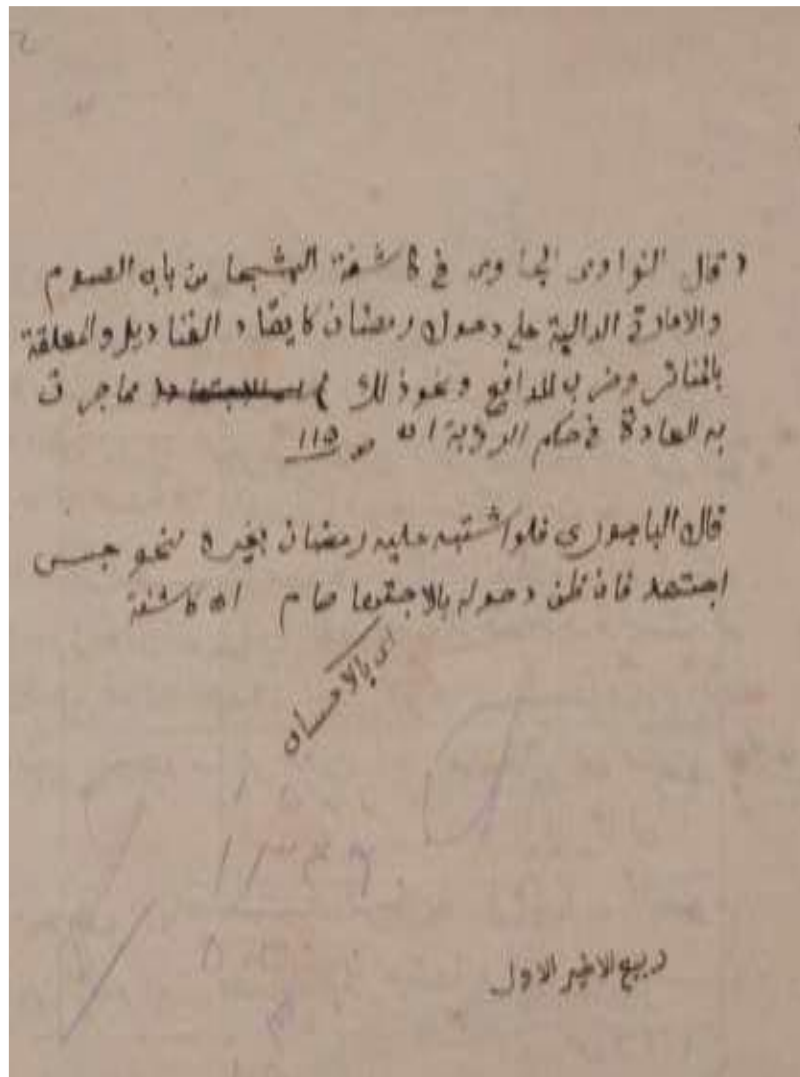 قال النواوى الجاوى فى كاشفة السجا من باب الصوم
والامارة الدالية على دخول رمضان كايقاد القناديل والمعلقة
بالمنائر وضرب المدافع ونحو ذلك مما جرت
به العادة فى حكم الرؤية اه ص ١١٥
قال الباجورى فلو اشتبه عليه رمضان بغيره لنحو حبس
اجتهد فان ظن دخوله بالاجتها صام اه كاشفة
اى بالاحسان
ربيع الاخير الاول